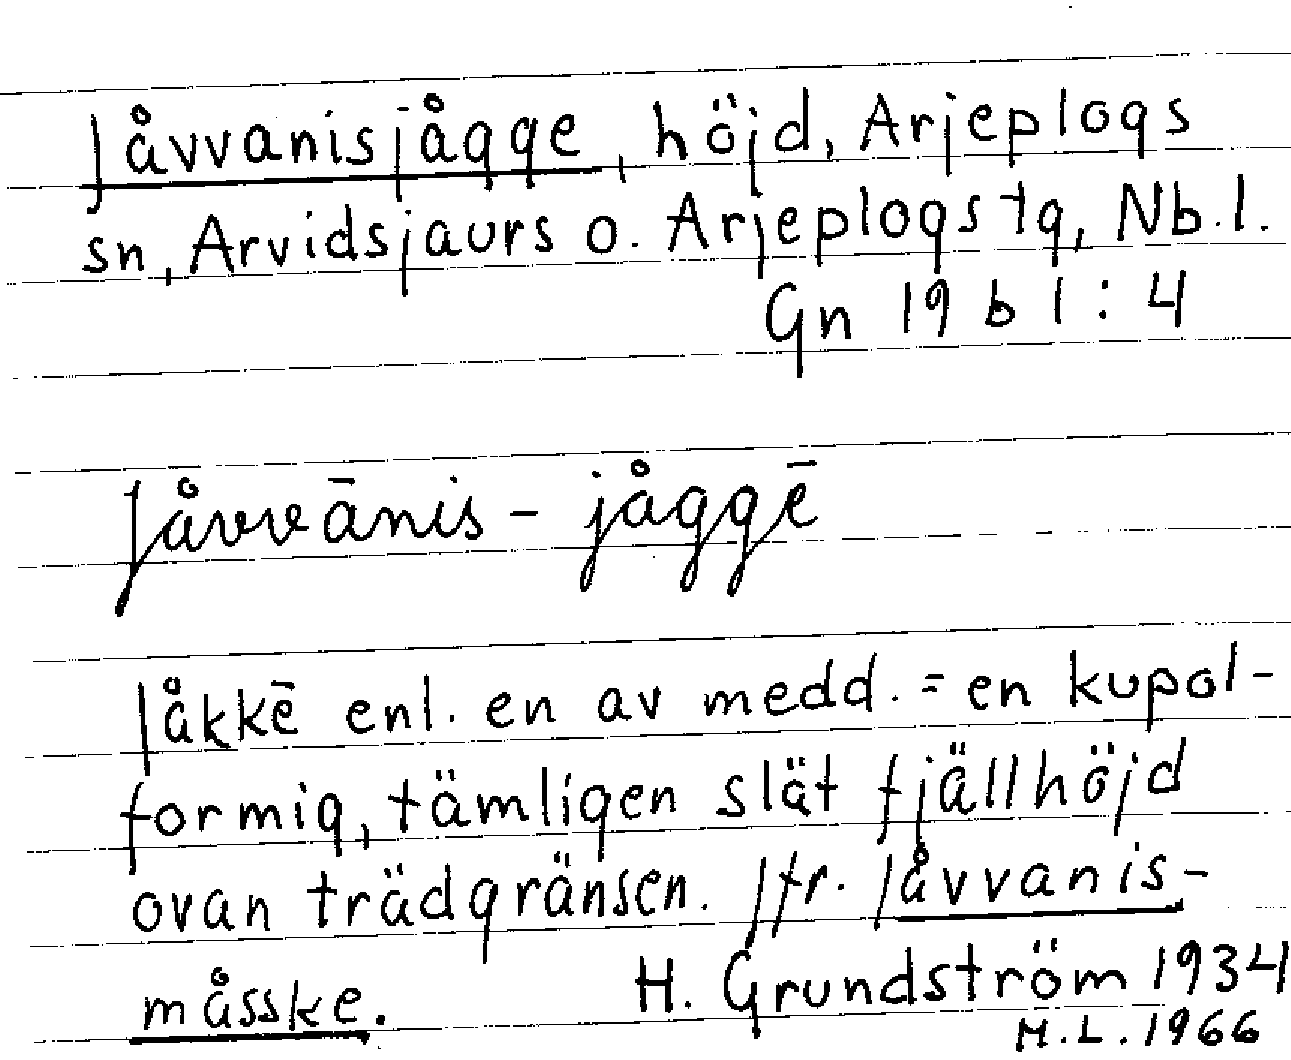 Jåvvanisjågge, höjd, Arjeplogs
sn, Arvidsjaurs o. Arjeplogs tg, Nb.l.
Gn 19 b 1:4
Jåvvānis - jåggē
Jåkkē enl. en av medd. = en kupol-
formig, tämligen slät fjällhöjd
ovan trädgränsen. Jfr. Jåvvanis-
måsske.
H. Grundström 1934
H.L. 1966